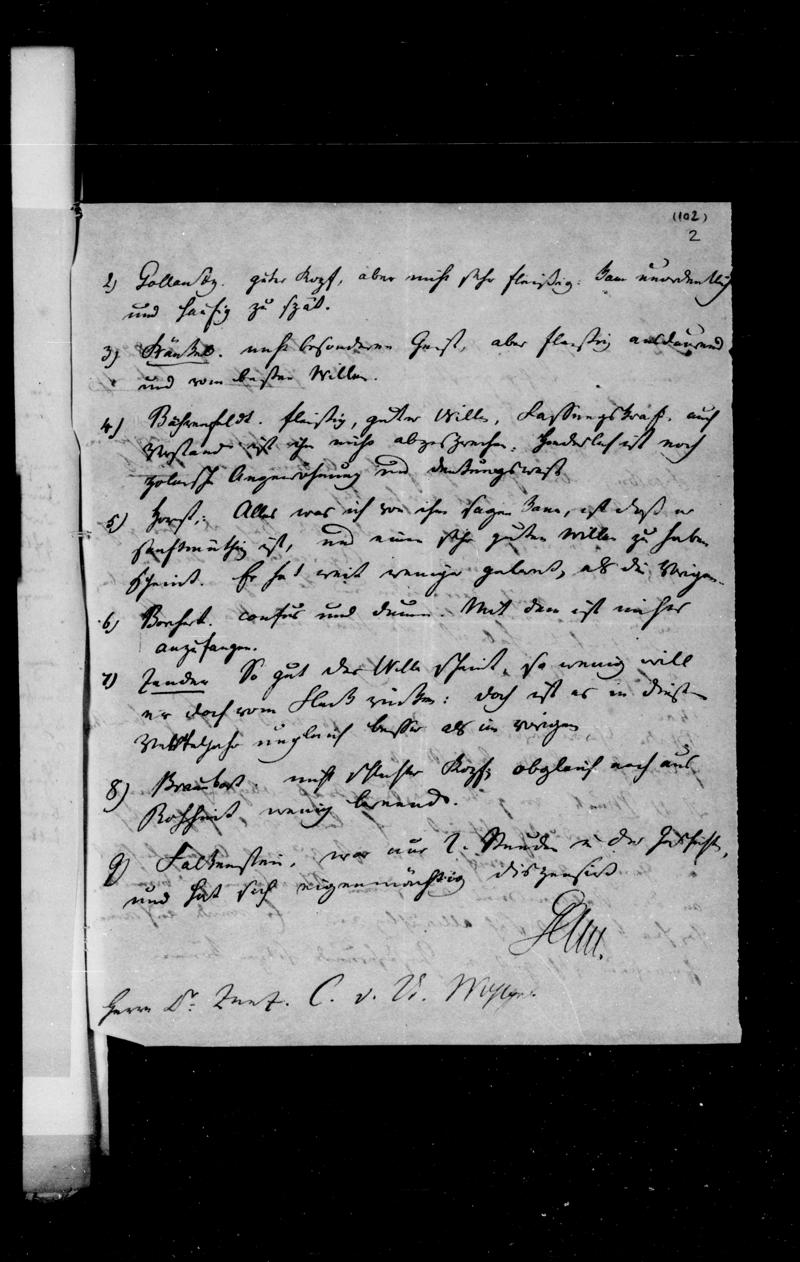 (102)
2
2) Gollantz. guter Kopf, aber nicht sehr fleißig. Dann unordentlich
und häufig zu spät.
3) Künkel. nicht besonderen Geist, aber fleißig ausdaurend
und vom besten Willen.
4) Bährenfeldt. fleißig, guter Wille, Fassungskraft. auch
Verstand ist ihm nicht abzusprechen. Hinderlich ist noch
polnische Angewöhnung und denkungsart
5) Horst,: Alles was ich von ihm sagen kann, ist daß er
sanftmüthig ist, und einen sehr guten Willen zu haben
scheint. Er hat weit weniger gelernt, als die Vorigen.
6) Borchert. confus und dumm. Mit dem ist nichts
anzufangen.
7) Zander So gut der Wille scheint, so wenig will
er doch vom Fleck rücken: doch ist es in diesem
Vierteljahr ungleich besser als im vorigen
8) nicht schlechter Kopf, obgleich noch aus
Rohheit, wenig lernend.
9) Falkenstein, war nur 2. Stunden in der Geschichte,
und hat sich eigenmächtig dispensirt
Herrn Dr C. v. U.